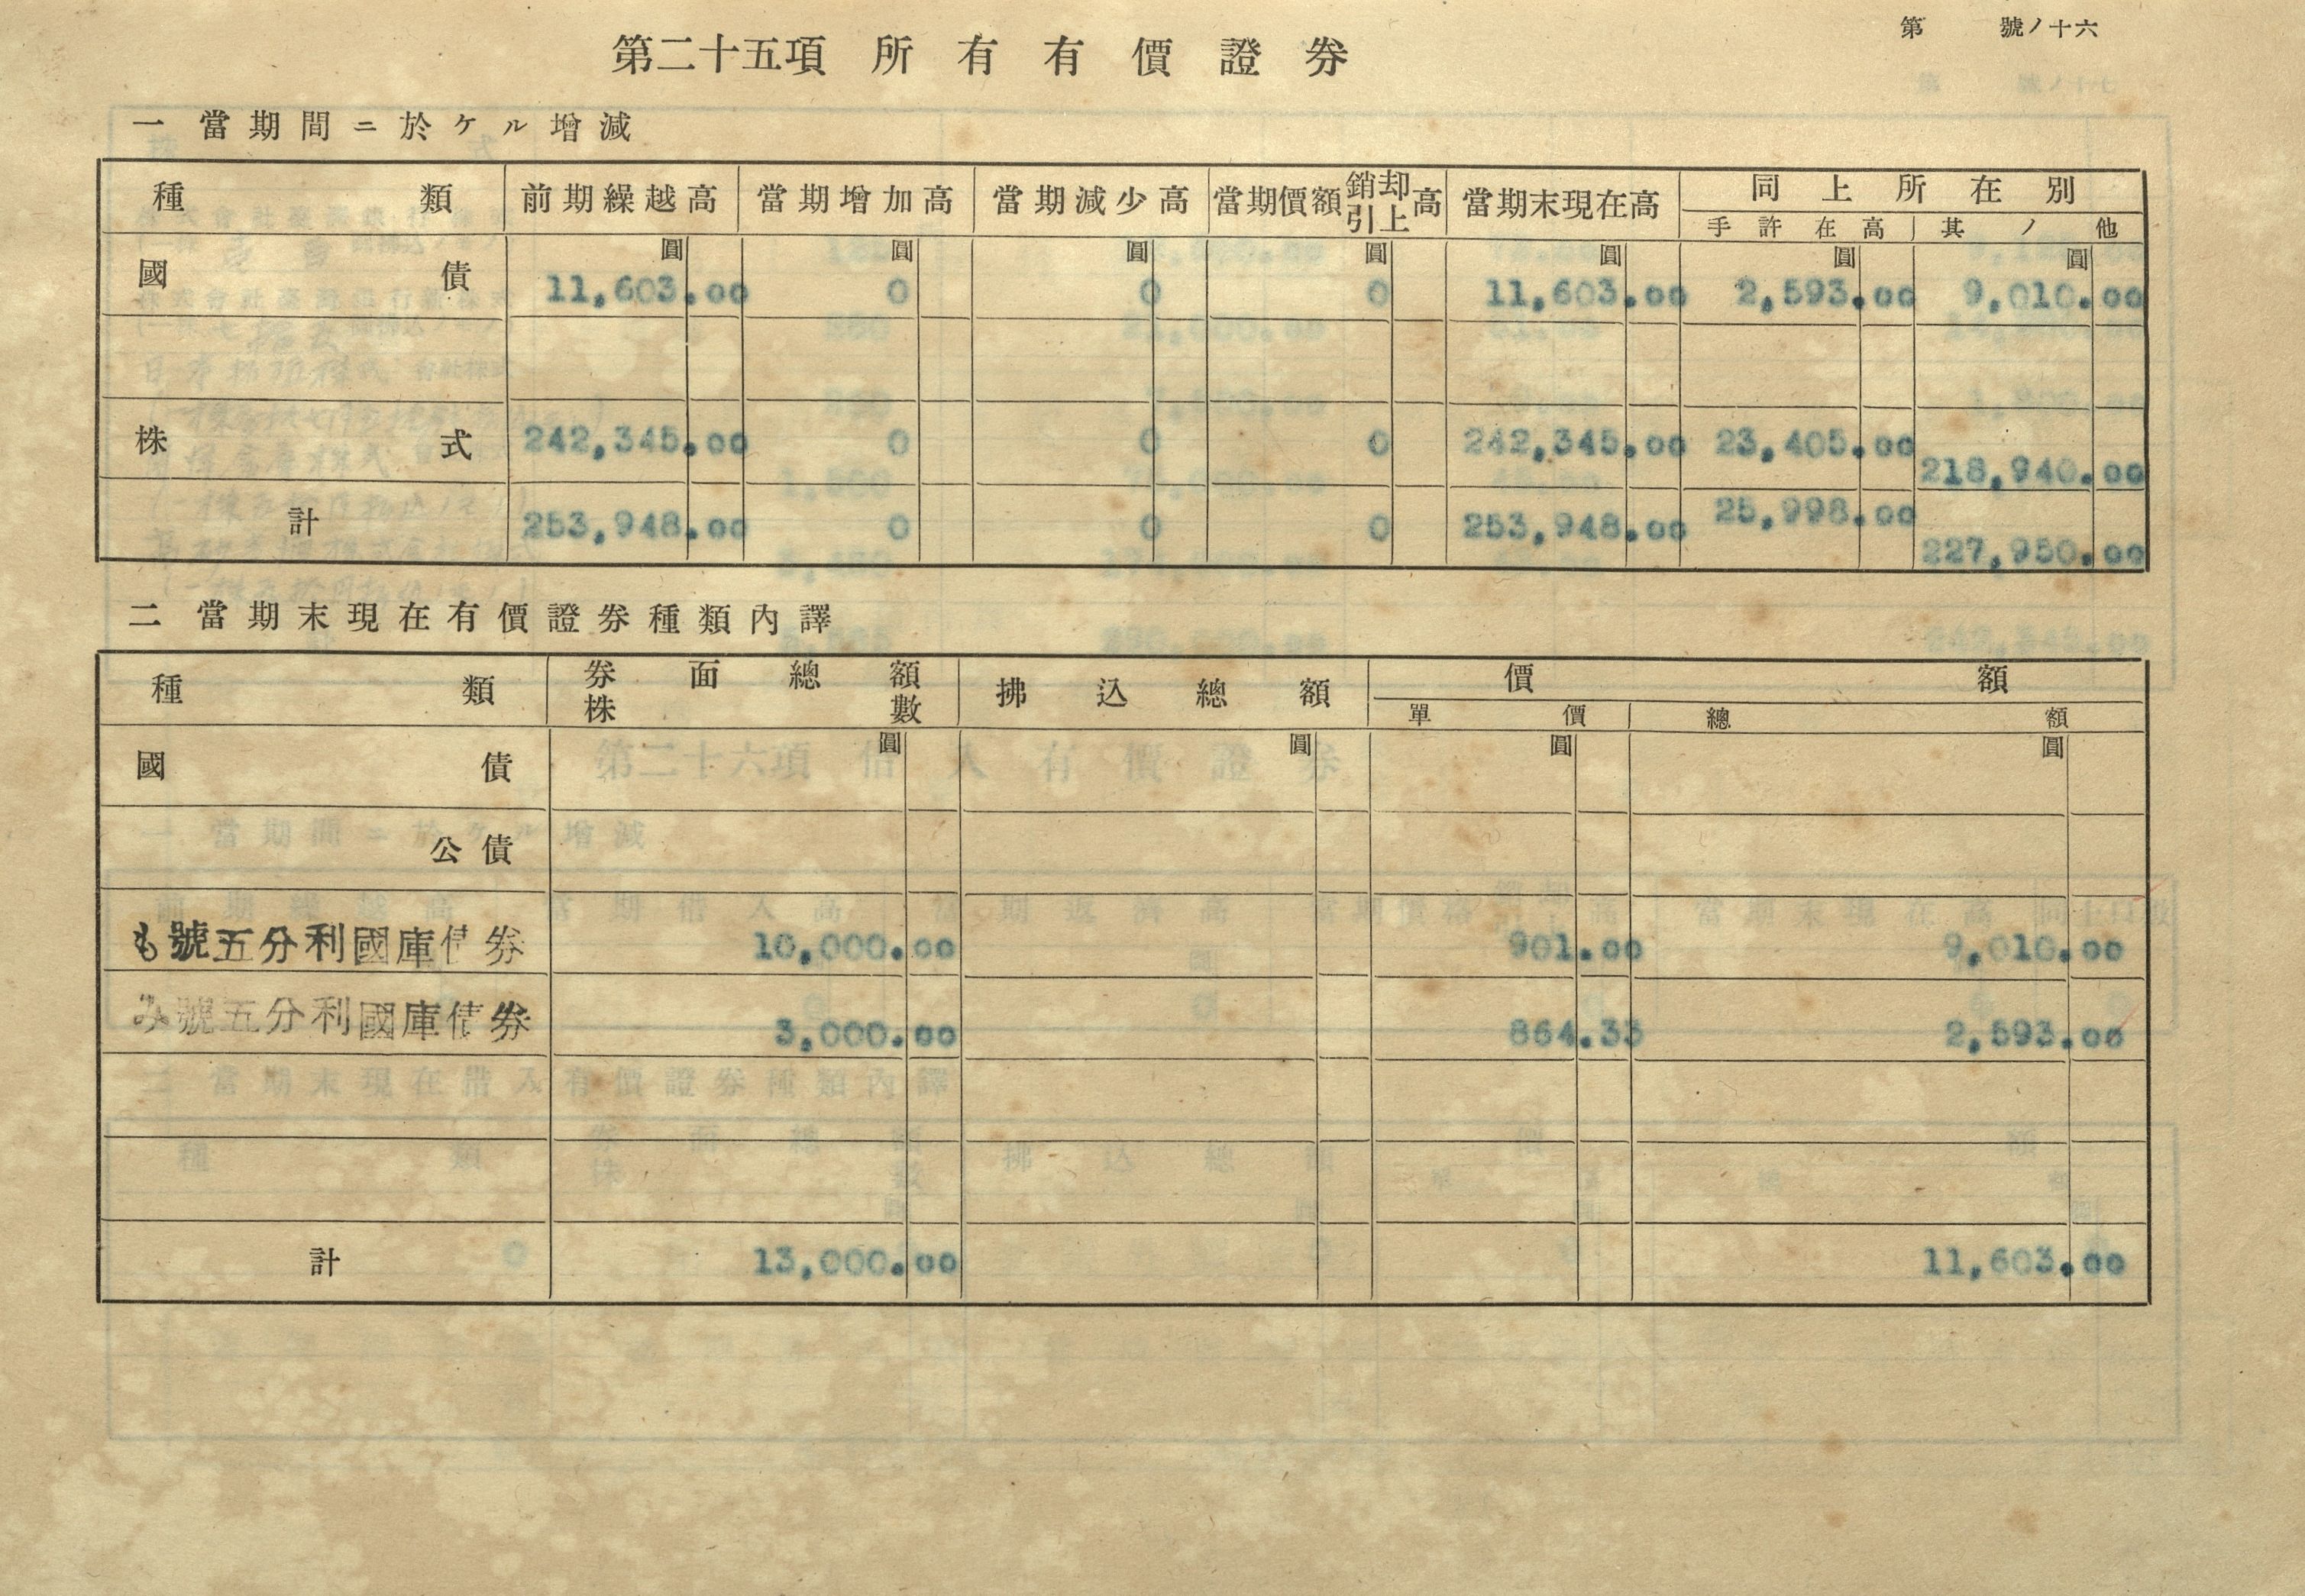 第 號ノ十六
第二十五項 所有有價證券
一 當期間ニ於ケル增減
種類 前期繰越高 當期增加高 當期減少高 當期價額銷却引上高 當期末現在高 同上所在別
手許在高 其ノ他
圓 圓 圓 圓 圓 圓 圓
國債 11,603.00 0 0 0 11,603.00 2,593.00 9,010.00
株式 242,345.00 0 0 0 242,345.00 23,405.00 218,940.00
計 253,948.00 0 0 0 253,948.00 25,998.00 227,950.00
二 當期末現在有價證券種類內譯
種類 券面總額 株數 拂込總額 價額
單價 總額
圓 圓 圓 圓
國債
公債
も號五分利國庫債券 10,000.00 901.00 9,010.00
み號五分利國庫債券 3,000.00 864.33 2,593.00
計 13,000.00 11,603.00